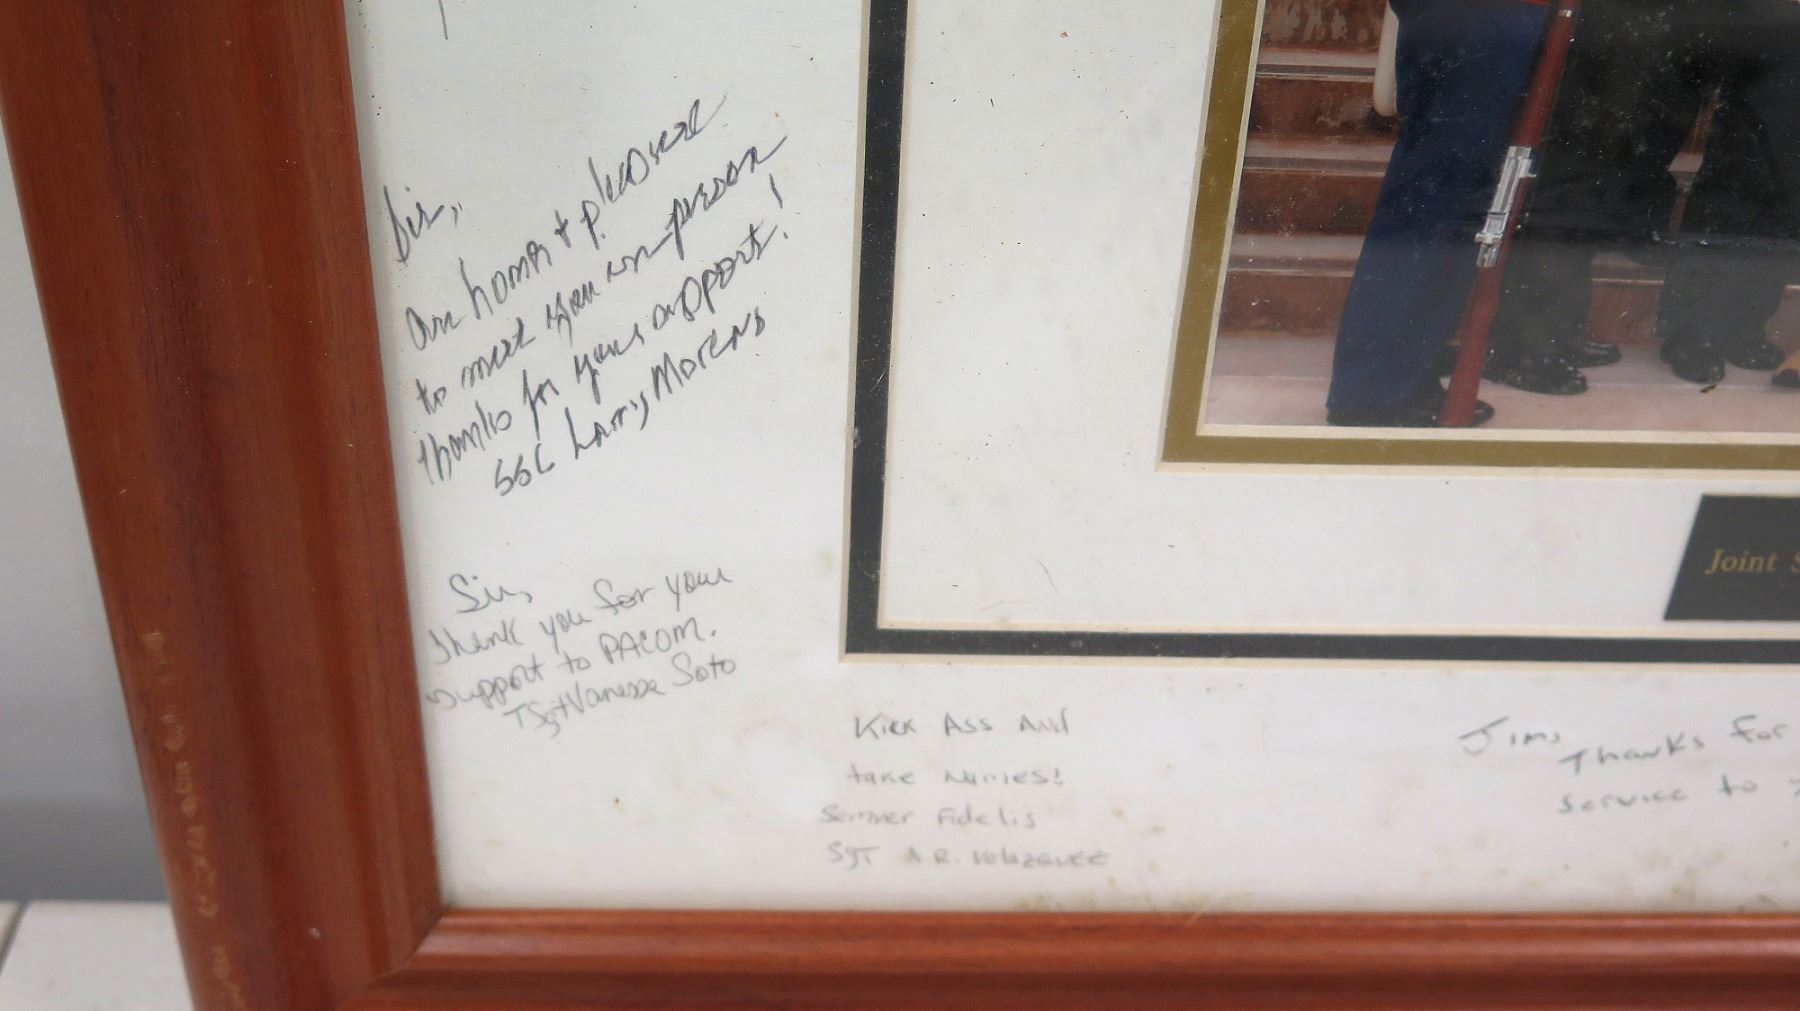 Sir,
An honor + pleasure
to meet you in person
thanks for your support!
SSG Larry
Sir,
Thank you for your
support to PACOM.
TSgt Vanessa Soto
Kick Ass And
take Names!
Semper Fidelis
SgT A.R. Velazquez
Jim,
Thanks for
service to
Joint S